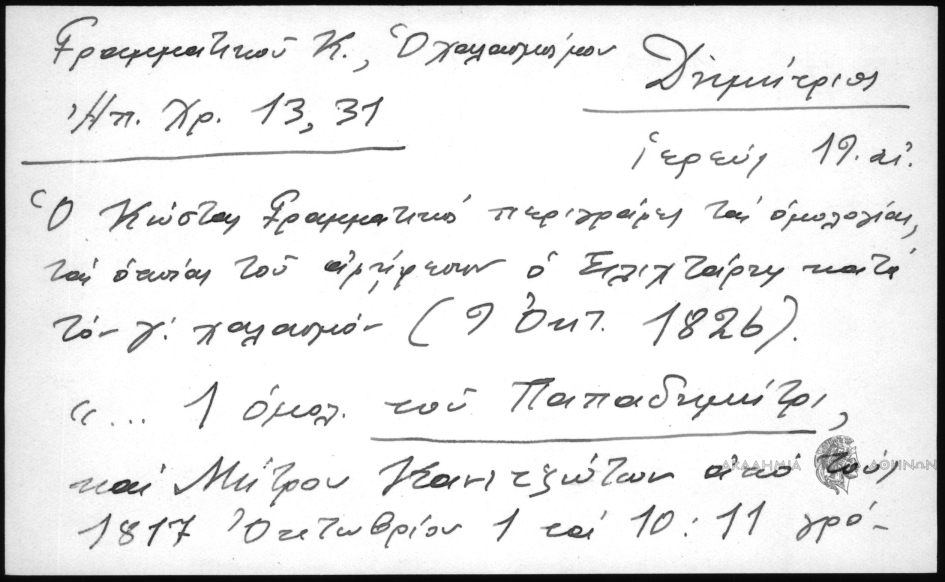 Γραμματικοῦ Κ., Ὁ χαλασμός μου
Δημήτριος
Ἠπ. Χρ. 13, 31
ἱερεύς 19. αἰ.
Ὁ Κώστας Γραμματικός περιγράφει τάς ὁμολογίας,
τάς ὁποίας τοῦ ἀφῄρεσεν ὁ Σιλιχτάρης κατά
τόν γ΄. χαλασμόν (9 Ὀκτ. 1826).
"... 1 ὁμολ. τοῦ Παπαδημήτρι,
καί Μήτρου Κανιτζιώτων ἀπό τούς
ΑΚΑΔΗΜΙΑ ΑΘΗΝΩΝ
1817 Ὀκτωβρίου 1 τά 10 : 11 γρό-